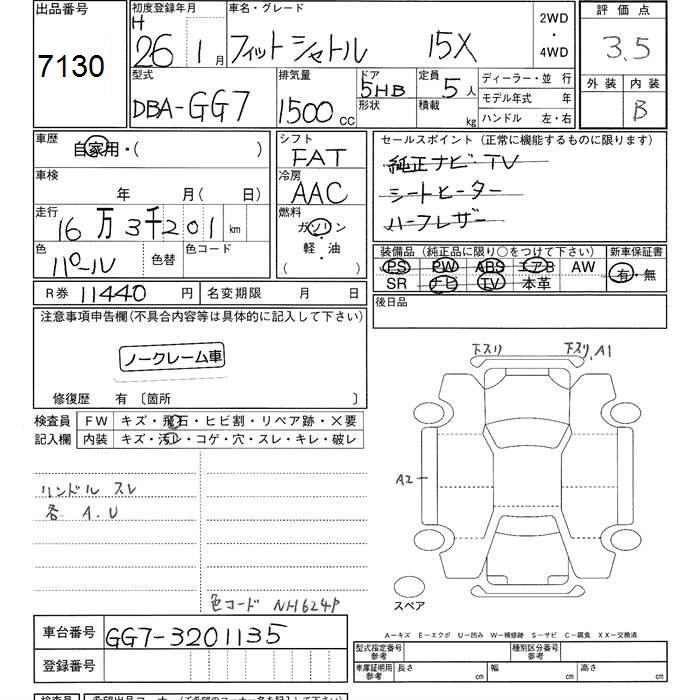 出品番号
7130
初度登録年月
H 26 1月
車名・グレード
フィットシャトル 15X
2WD
・
4WD
評価点
3.5
外装 内装
B
型式
DBA-GG7
排気量
1500cc
ドア
5HB
形状
定員
5人
積載 kg
ディーラー・並 行
モデル年式 年
ハンドル 左・右
車歴
自家用・( )
車検
年 月( 日)
走行
16万3千201km
色
パール
色替
色コード
シフト
FAT
冷房
AAC
燃料
ガソリン
軽・油
( )
セールスポイント(正常に機能するものに限ります)
純正ナビ・TV
シートヒーター
ハーフレザー
装備品(純正品に限り○をつけて下さい)
PS PW ABS エアB AW
SR ナビ TV 本革
新車保証書
有・無
R券 11440 円
名変期限 月 日
後日品
注意事項申告欄(不具合内容等は具体的に記入して下さい)
ノークレーム車
修復歴 有 〔箇所 〕
検査員
記入欄
FW キズ・飛石・ヒビ割・リペア跡・X要
内装 キズ・汚レ・コゲ・穴・スレ・キレ・破レ
リンドル スレ
各 A.U
色コード NH624P
下スリ
下スリ, A1
A2
スペア
A―キズ E―エクボ U―凹み W―補修跡 S―サビ C―腐食 XX―交換済
車台番号
GG7-3201135
登録番号
型式指定番号
参考
種別区分番号
参考
車庫証明用
参考
長さ cm
幅 cm
高さ cm
検査員
希望出品コーナー(ご希望のコーナー名を記入して下さい)